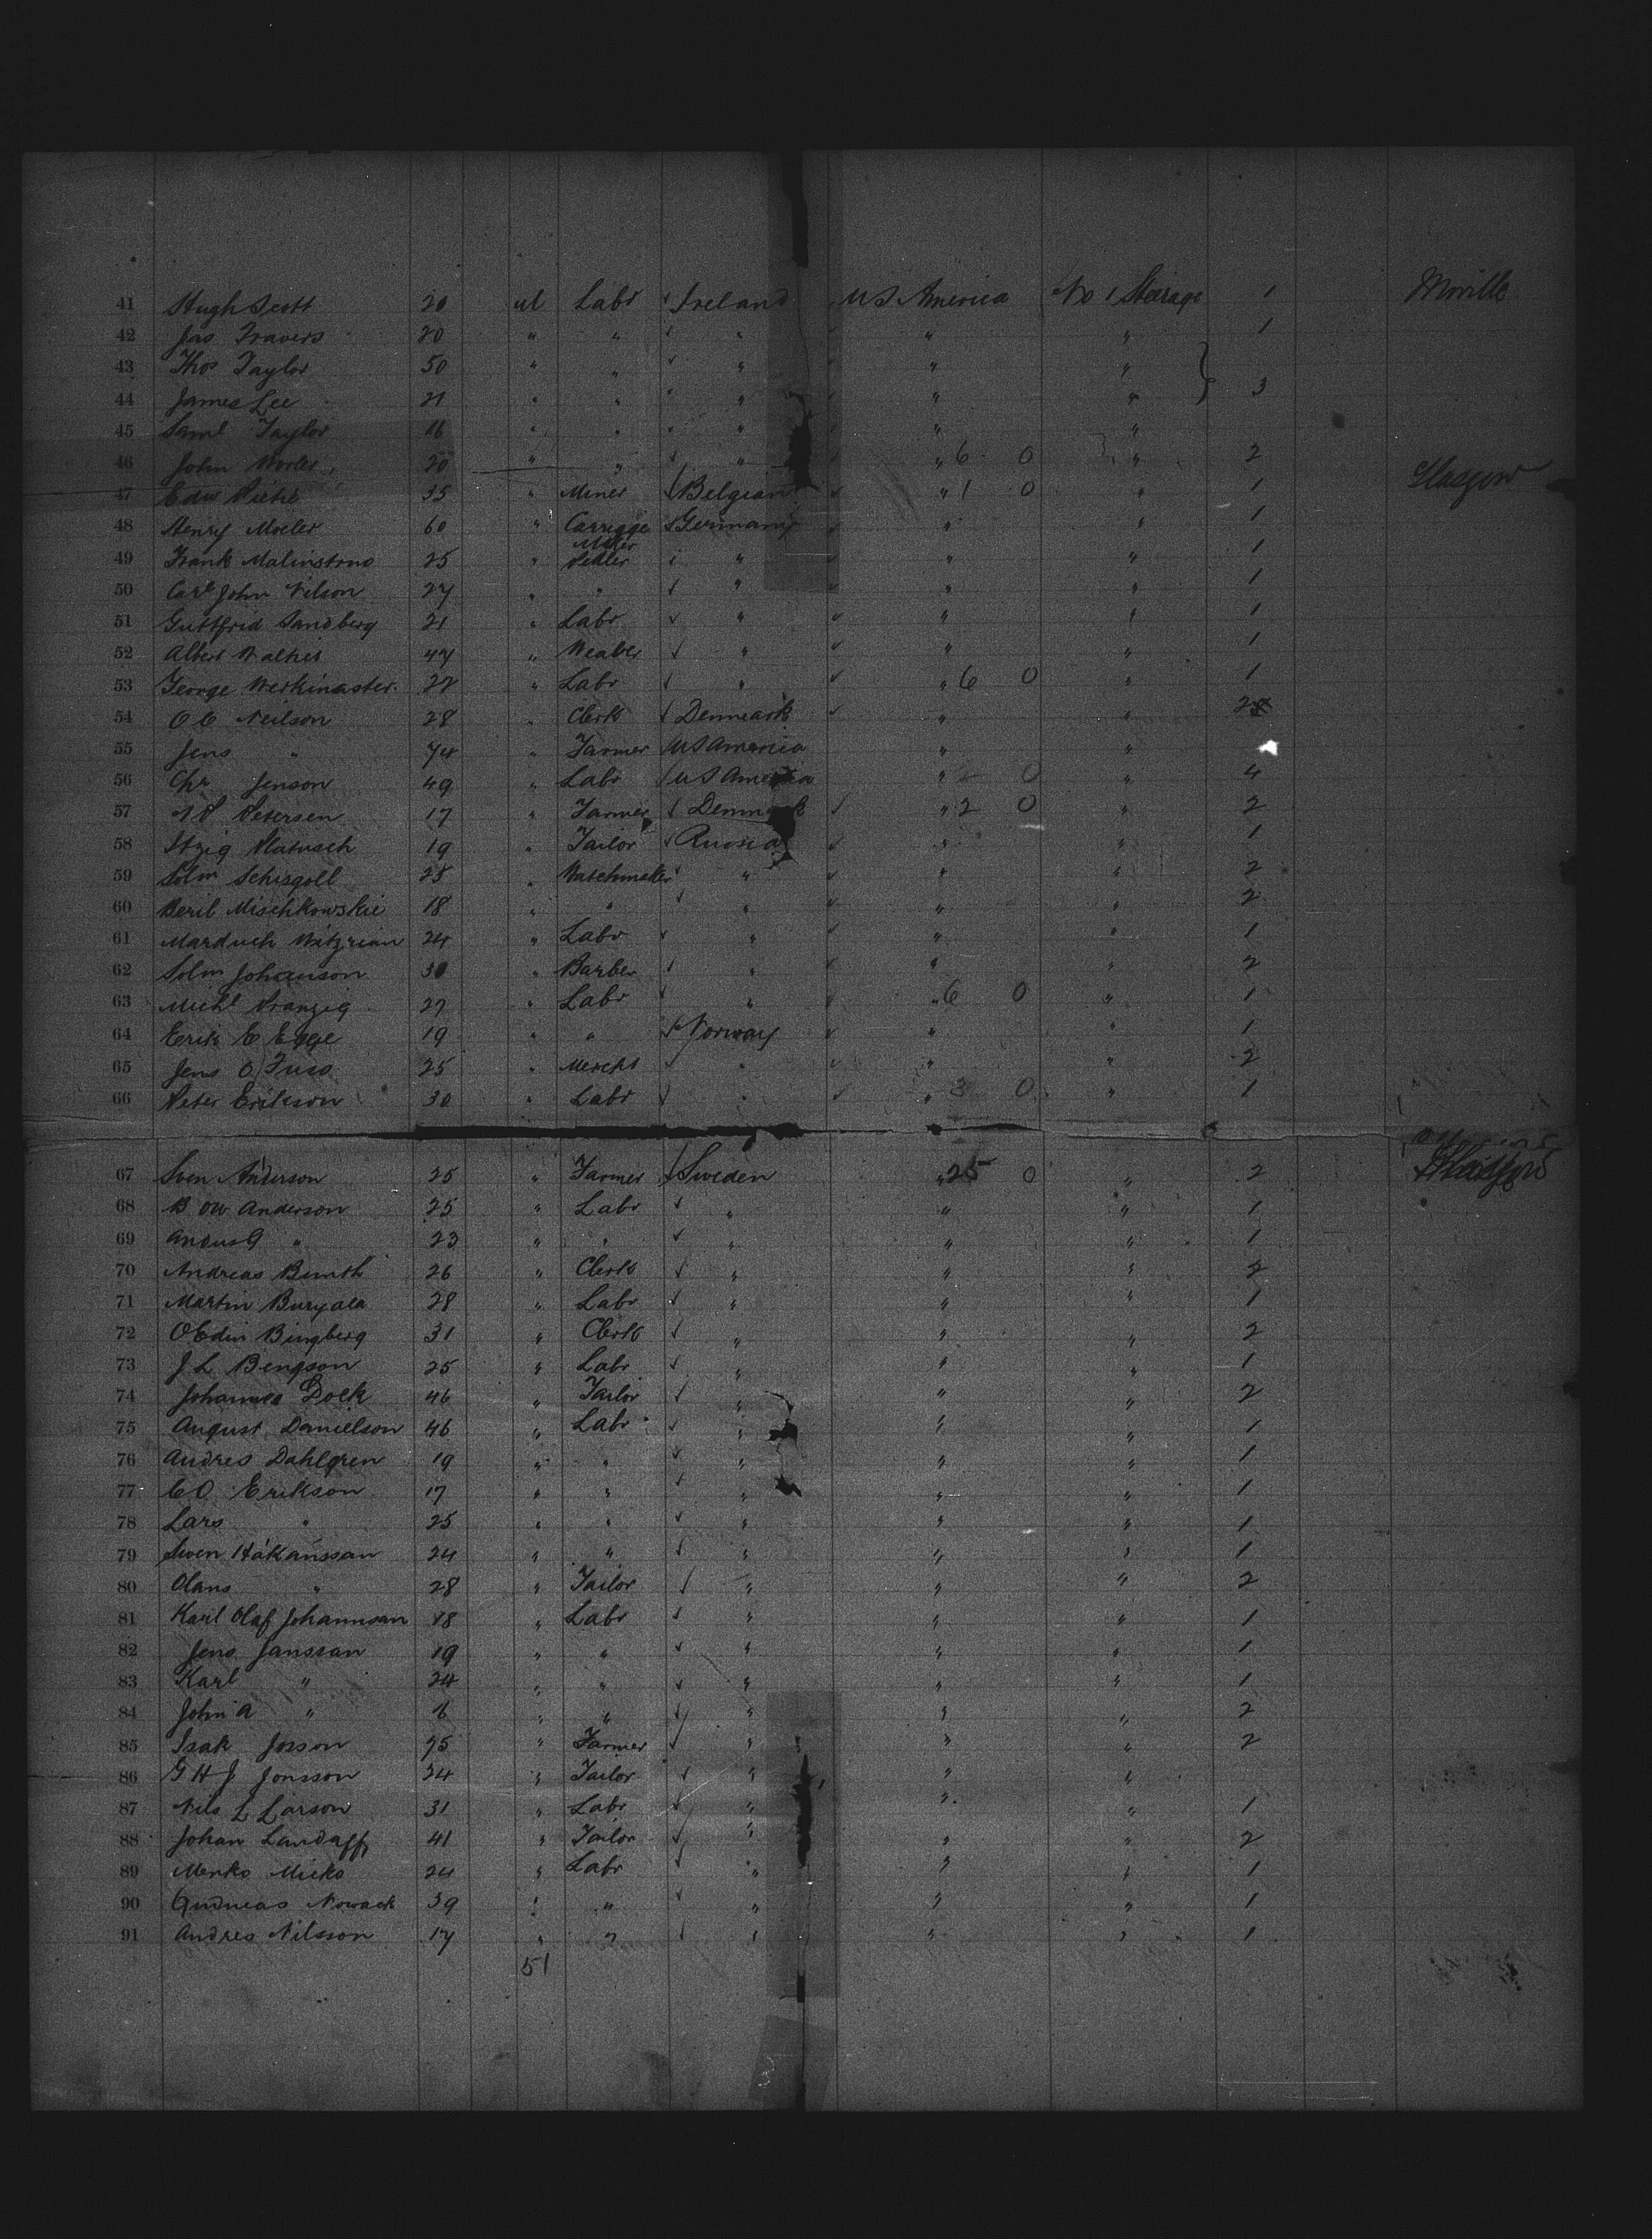 41 Hugh Scott 20 M Labr Ireland U S America No 1 Steerage 1 Moville
42 Jas Travers 20 " " " " " 1
43 Thos Taylor 50 " " " " "
44 James Lee 21 " " " " " 3
45 Saml Taylor 16 " " " " "
46 John 20 " " " " 6 0 " 2
47 Edw 35 " Miner Belgian " 1 0 " 1 Glasgow
48 Henry Moeler 60 " Carrigge Maker Germany " " 1
49 Frank 25 " " " " 1
50 Carl John Nilson 27 " " " " " 1
51 Guttfrid Sandberg 21 " Labr " " " 1
52 Albert Walther 47 " Weaver " " " 1
53 George Werkmaster 27 " Labr " " 6 0 " 1
54 O C Neilson 28 " Clerk Denmark " " 2
55 Jens " 74 " Farmer U S America " "
56 Chr Jenson 49 " Labr U S America " 2 0 " 4
57 Petersen 17 " Farmer Denmark " 2 0 " 2
58 Itzig 19 " Tailor Russia " " 1
59 Solm Schisgoll 25 " Watchmaker " " " 2
60 Beril Mischkowskie 18 " " " " " 2
61 Marduch 24 " Labr " " " 1
62 Solm Johanson 30 " Barber " " " 2
63 Michl 27 " Labr " " 6 0 " 1
64 Erik E Egge 19 " " Norway " " 1
65 Jens O Fuso 25 " Mercht " " " 2
66 Peter Erikson 30 " Labr " " 3 0 " 1
67 Sven Anderson 25 " Farmer Sweden " 25 0 " 2
68 Anderson 25 " Labr " " " 1
69 " 23 " " " " " 1
70 Andreas 26 " Clerk " " " 2
71 Martin 28 " Labr " " " 1
72 Bingberg 31 " Clerk " " " 2
73 J L Bengson 25 " Labr " " " 1
74 Johannes Dock 46 " Tailor " " " 2
75 August Danielson 46 " Labr " " " 1
76 Andres Dahlgren 19 " " " " " 1
77 C O Erikson 17 " " " " " 1
78 Lars " 25 " " " " " 1
79 Swen Håkanssan 24 " " " " " 1
80 Olans " 28 " Tailor " " " 2
81 Karl Olaf Johannsan 18 " Labr " " " 1
82 Jens Janssan 19 " " " " " 1
83 Karl " 24 " " " " " 1
84 John A " " " " " " 2
85 Isak Josson " Farmer " " " 2
86 G H J Jonsson 34 " Tailor " " "
87 Nils L Larson 31 " Labr " " " 1
88 Johan Landaff 41 " Tailor " " " 2
89 Merko Micko 24 " Labr " " " 1
90 Andreas Nowack 39 " " " " " 1
91 Andres Nilsson 17 " " " " " 1
51